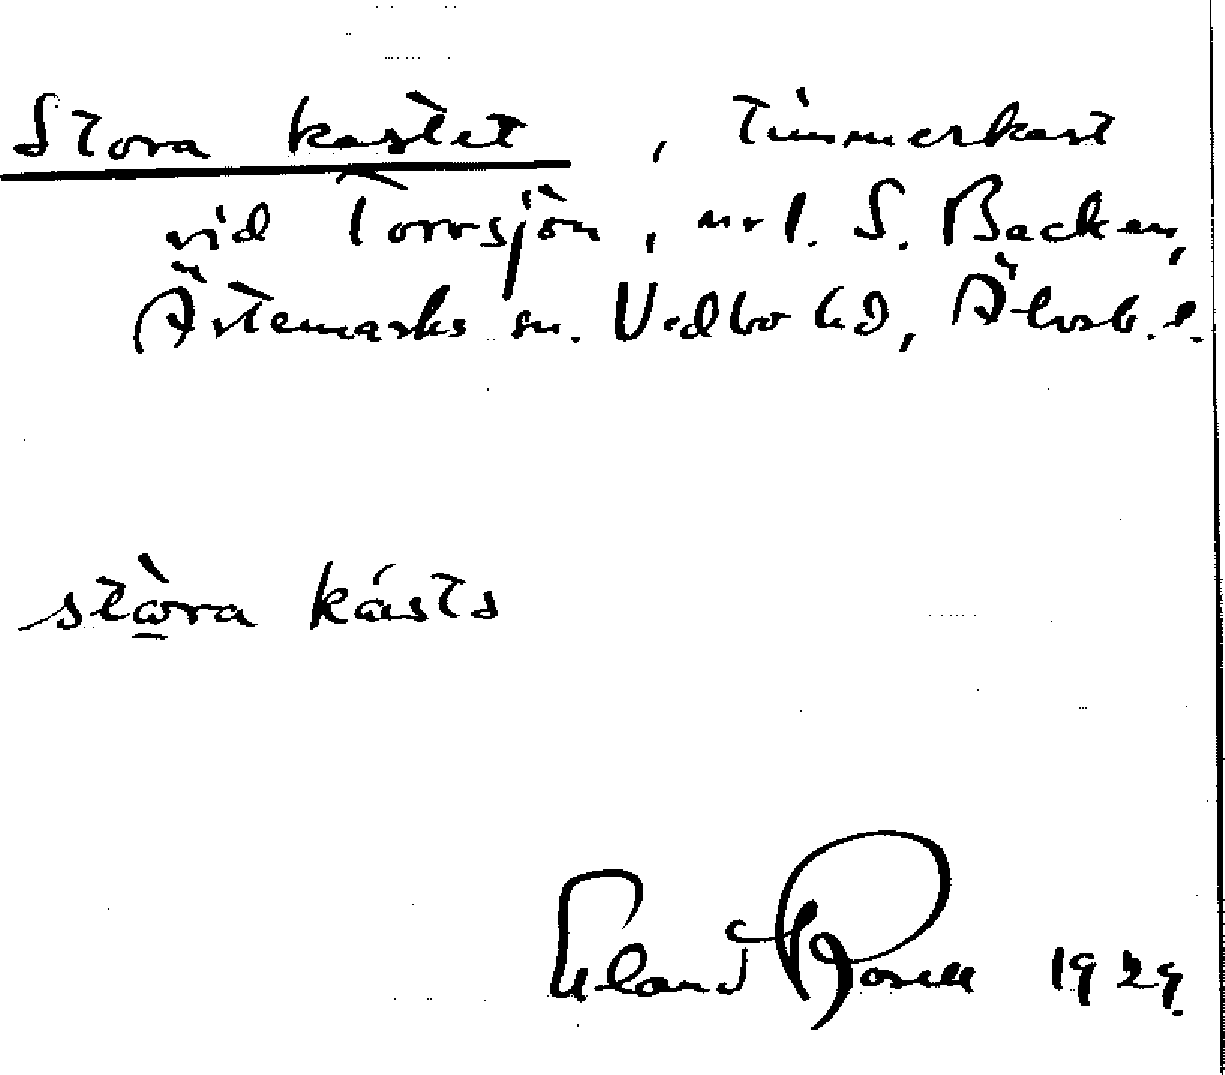 Stora kastet, timmerkast
vid Torrsjön, nr 1. S. Backen,
Ärtemarks sn. Vedbo hd, Älvsb. l.
stò̱ra kásts
Erland Rosell 1929.